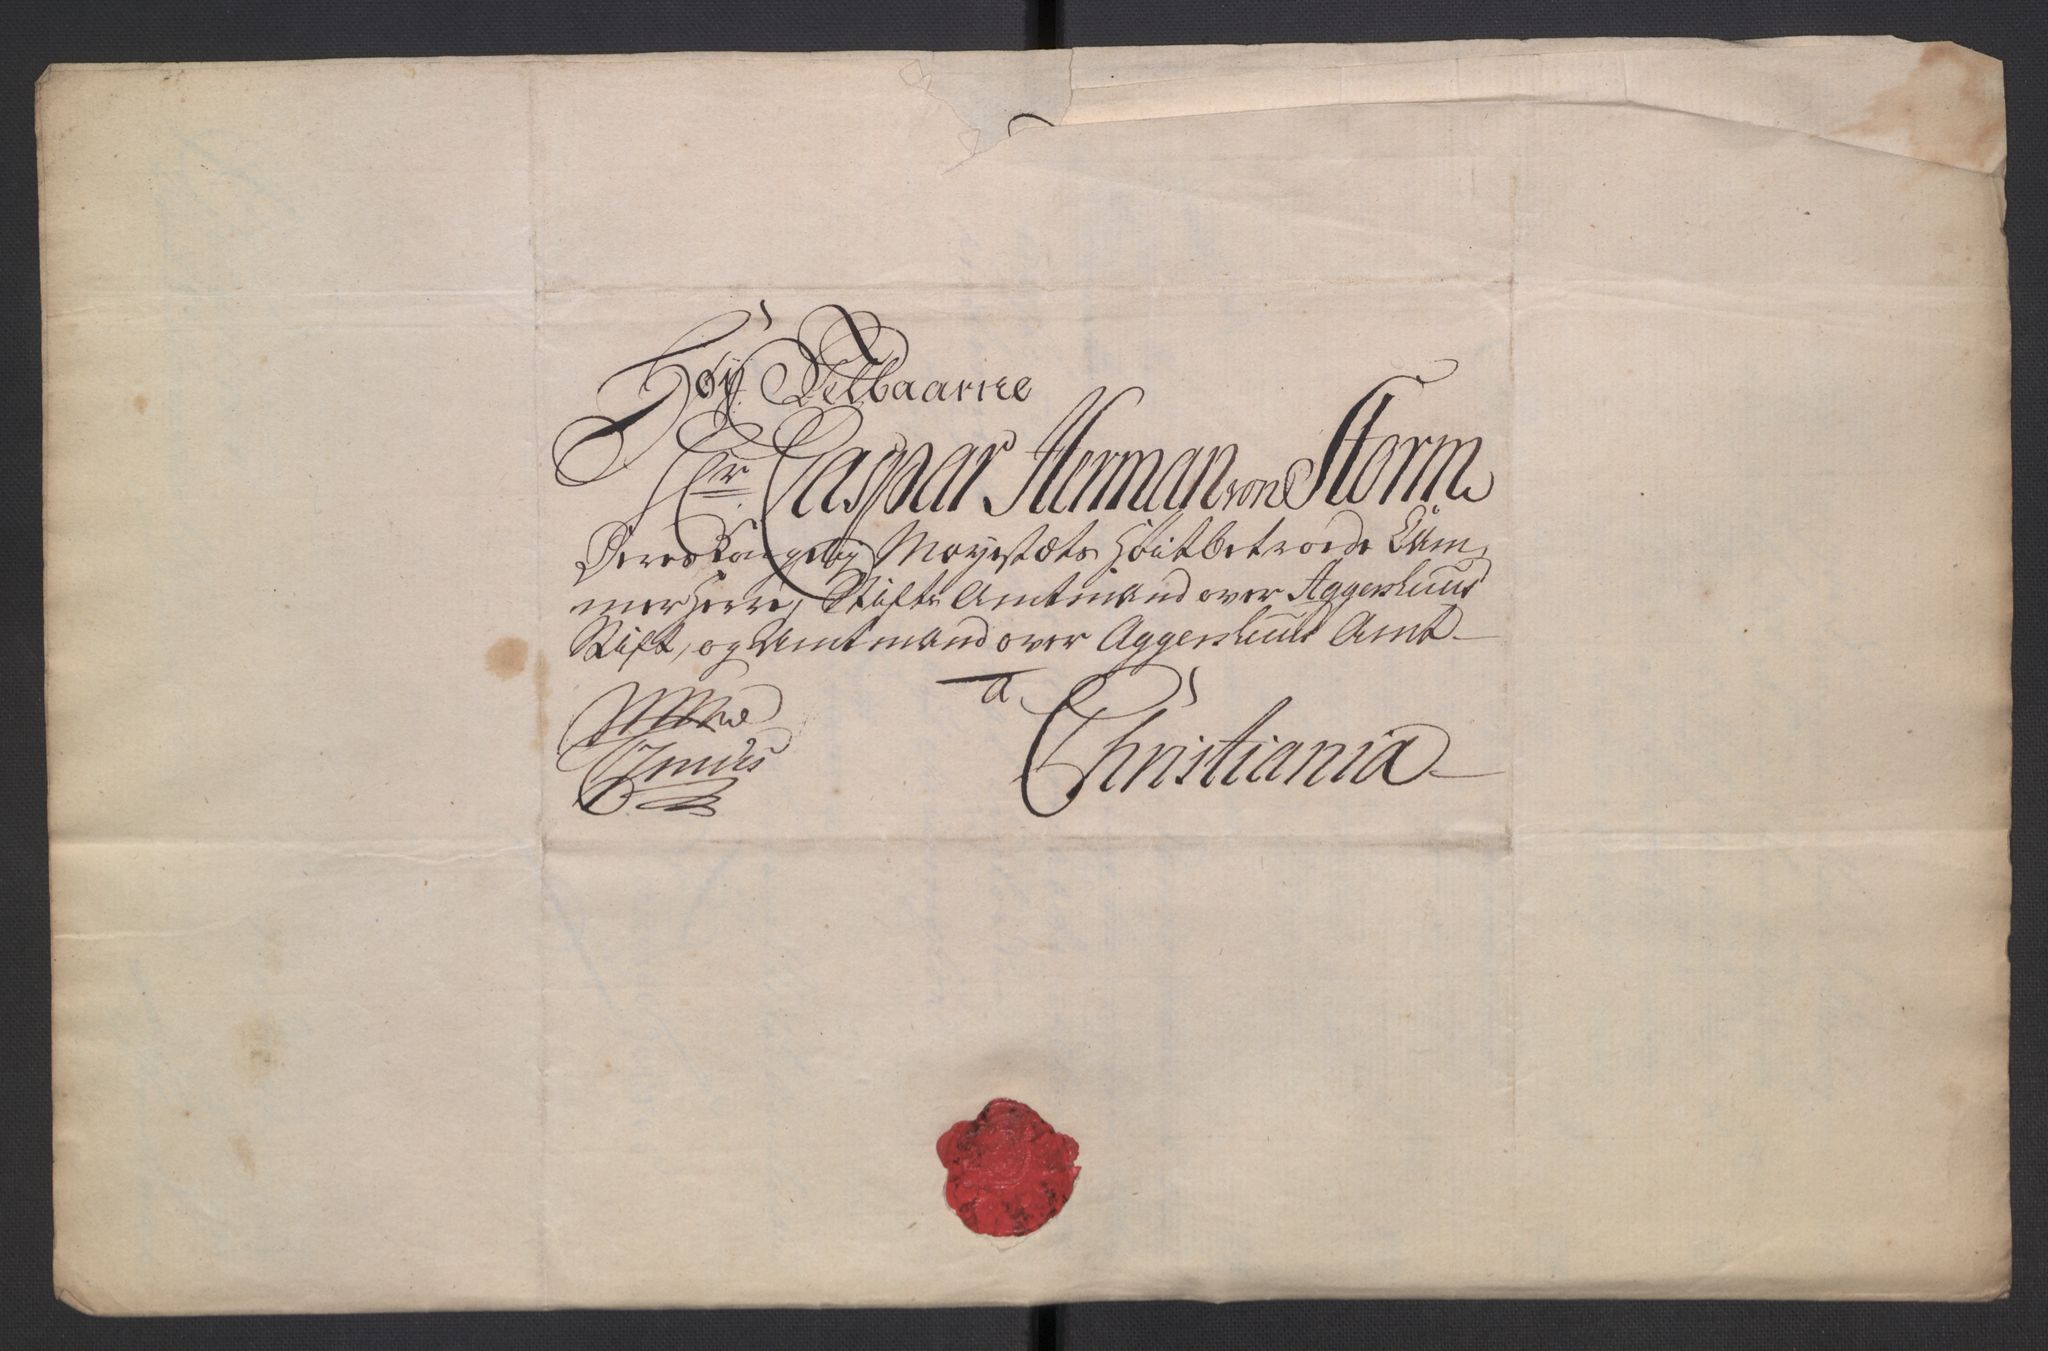 Høy Velbaarne
Hr. Caspar Herman von Storm
Deres Kongelig Mayestæts Høitbetroede Cam,
mer Herre, Stifts Amtmand over Aggershuus
Stift, og Amtmand over Aggershuus Amt
a
Christiania